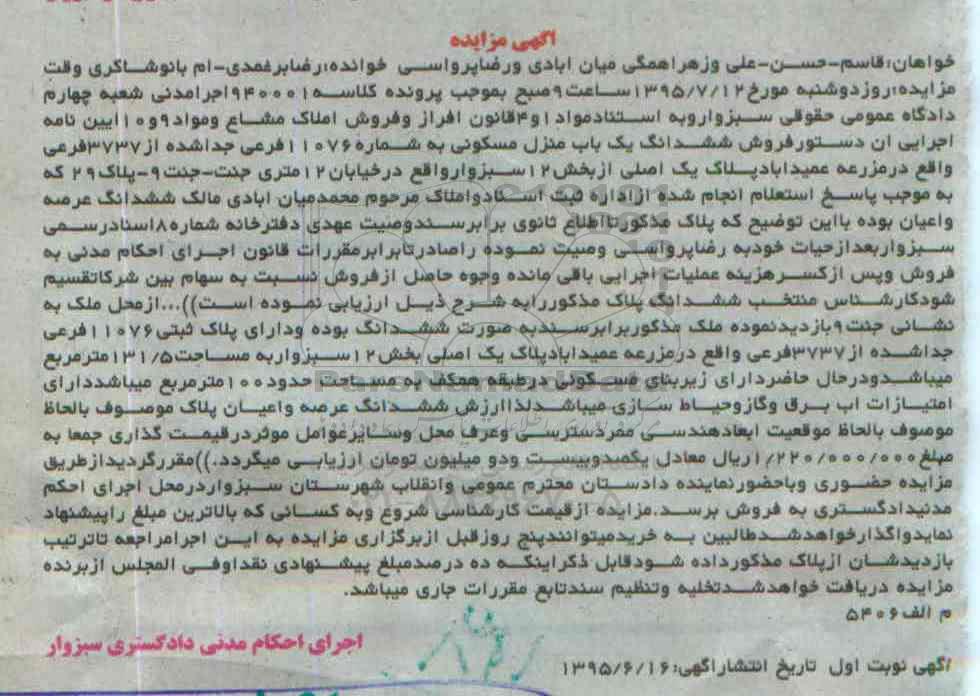 آگهی مزایده
خواهان:قاسم-حسن-علی وزهراهمگی میان ابادی ورضاپرواسی خوانده:رضابرغمدی-ام بانوشاکری وقت
مزایده:روزدوشنبه مورخ۱۳۹۵/۷/۱۲ساعت۹صبح بموجب پرونده کلاسه۹۴۰۰۰۱اجرامدنی شعبه چهارم
دادگاه عمومی حقوقی سبزواروبه استنادمواد۱و۴قانون افراز وفروش املاک مشاع ومواد۹و۱۰ایین نامه
اجرایی ان دستورفروش ششدانگ یک باب منزل مسکونی به شماره۱۱۰۷۶فرعی جداشده از۳۷۳۷فرعی
واقع درمزرعه عمیدابادپلاک یک اصلی ازبخش۱۲سبزوارواقع درخیابان۱۲متری جنت-جنت۹-پلاک۲۹ که
به موجب پاسخ استعلام انجام شده ازاداره ثبت اسنادواملاک مرحوم محمدمیان ابادی مالک ششدانگ عرصه
واعیان بوده بااین توضیح که پلاک مذکورتااطلاع ثانوی بر برسندوصیت عهدی دفترخانه شماره۸اسنادرسمی
سبزواربعدازحیات خودبه رضاپرواسی وصیت نموده راصادرتابرابرمقررات قانون اجرای احکام مدنی به
فروش وپس ازکسرهزینه عملیات اجرایی باقی مانده وجوه حاصل ازفروش نسبت به سهام بین شرکاتقسیم
شودکارشناس منتخب ششدانگ پلاک مذکوررابه شرح ذیل ارزیابی نموده است))...ازمحل ملک به
نشانی جنت۹بازدیدنموده ملک مذکوربرابرسندبه صورت ششدانگ بوده ودارای پلاک ثبتی۱۱۰۷۶فرعی
جداشده از۳۷۳۷فرعی واقع درمزرعه عمیدابادپلاک یک اصلی بخش۱۲سبزواربه مساحت۱۳۱/۵مترمربع
میباشدودرحال حاضردارای زیربنای مسکونی درطبقه همکف به مساحت حدود۱۰۰مترمربع میباشددارای
امتیازات اب برق وگازوحیاط سازی میباشدلذاارزش ششدانگ عرصه واعیان پلاک موصوف بالحاظ
موصوف بالحاظ موقعیت ابعادهندسی ممردسترسی وعرف محل وسایرعوامل موثردرقیمت گذاری جمعا به
مبلغ۱/۲۲۰/۰۰۰/۰۰۰ریال معادل یکصدوبیست ودو میلیون تومان ارزیابی میگردد.))مقررگردیدازطریق
مزایده حضوری وباحضورنماینده دادستان محترم عمومی وانقلاب شهرستان سبزواردرمحل اجرای احکم
مدنیدادگستری به فروش برسد.مزایده ازقیمت کارشناسی شروع وبه کسانی که بالاترین مبلغ راپیشنهاد
نمایدواگذارخواهدشدطالبین به خریدمیتوانندپنج روزقبل ازبرگزاری مزایده به این اجرامراجعه تاترتیب
بازدیدشان ازپلاک مذکورداده شودقابل ذکراینکه ده درصدمبلغ پیشنهادی نقداوفی المجلس ازبرنده
مزایده دریافت خواهدشدتخلیه وتنظیم سندتابع مقررات جاری میباشد.
م الف۵۴۰۶
اجرای احکام مدنی دادگستری سبزوار
آگهی نوبت اول تاریخ انتشارآگهی:۱۳۹۵/۶/۱۶